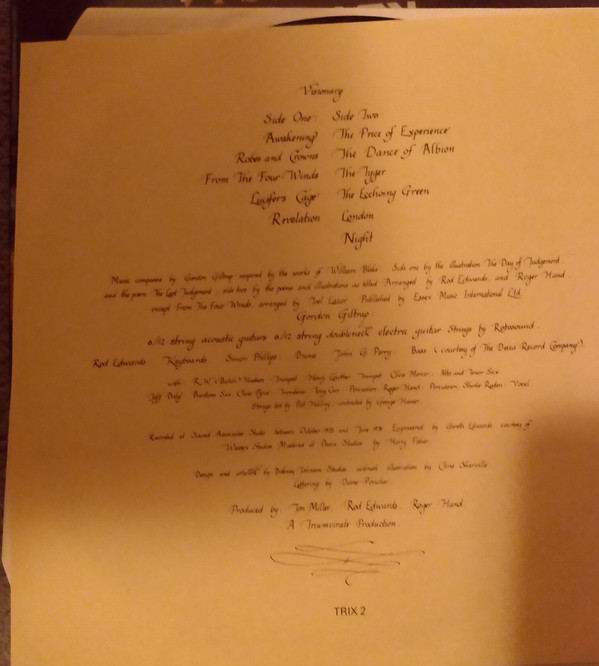 Visionary
Side One Side Two
Awakening The Price of Experience
Robes and Crowns The Dance of Albion
From The Four Winds The Tyger
Lucifers Cage The Ecchoing Green
Revelation London
Night
Music composed by Gordon Giltrap inspired by the works of William Blake. Side one by the illustration The Day of Judgement
and the poem The Last Judgement: side two by the poems and illustrations as titled. Arranged by Rod Edwards and Roger Hand
except From The Four Winds, arranged by Published by Essex Music International Ltd.
Gordon Giltrap:
6/12 string acoustic guitars 6/12 string doubleneck electric guitar Strings by Rotosound
Rod Edwards: Keyboards Simon Phillips: Drums John G Perry: Bass (courtesy of The Decca Record Company)
with: Trumpet: Henry Trumpet: Chris Mercer: Alto and Tenor Sax
Jeff Daly: Baritone Sax Chris Pyne: Trombone: Tony Carr: Percussion: Roger Hand: Percussion: Shirlie Roden: Vocal
Strings led by Pat contracted by George
Recorded at Sound Associates Studio between October 1975 and June 1976 Engineered by Gareth Edwards courtesy of
Studios Mastered at Decca Studios by Harry Fisher
Design and by Studios illustration by
Lettering by
Produced by: Jon Miller: Rod Edwards: Roger Hand
A Triumvirate Production.
TRIX 2